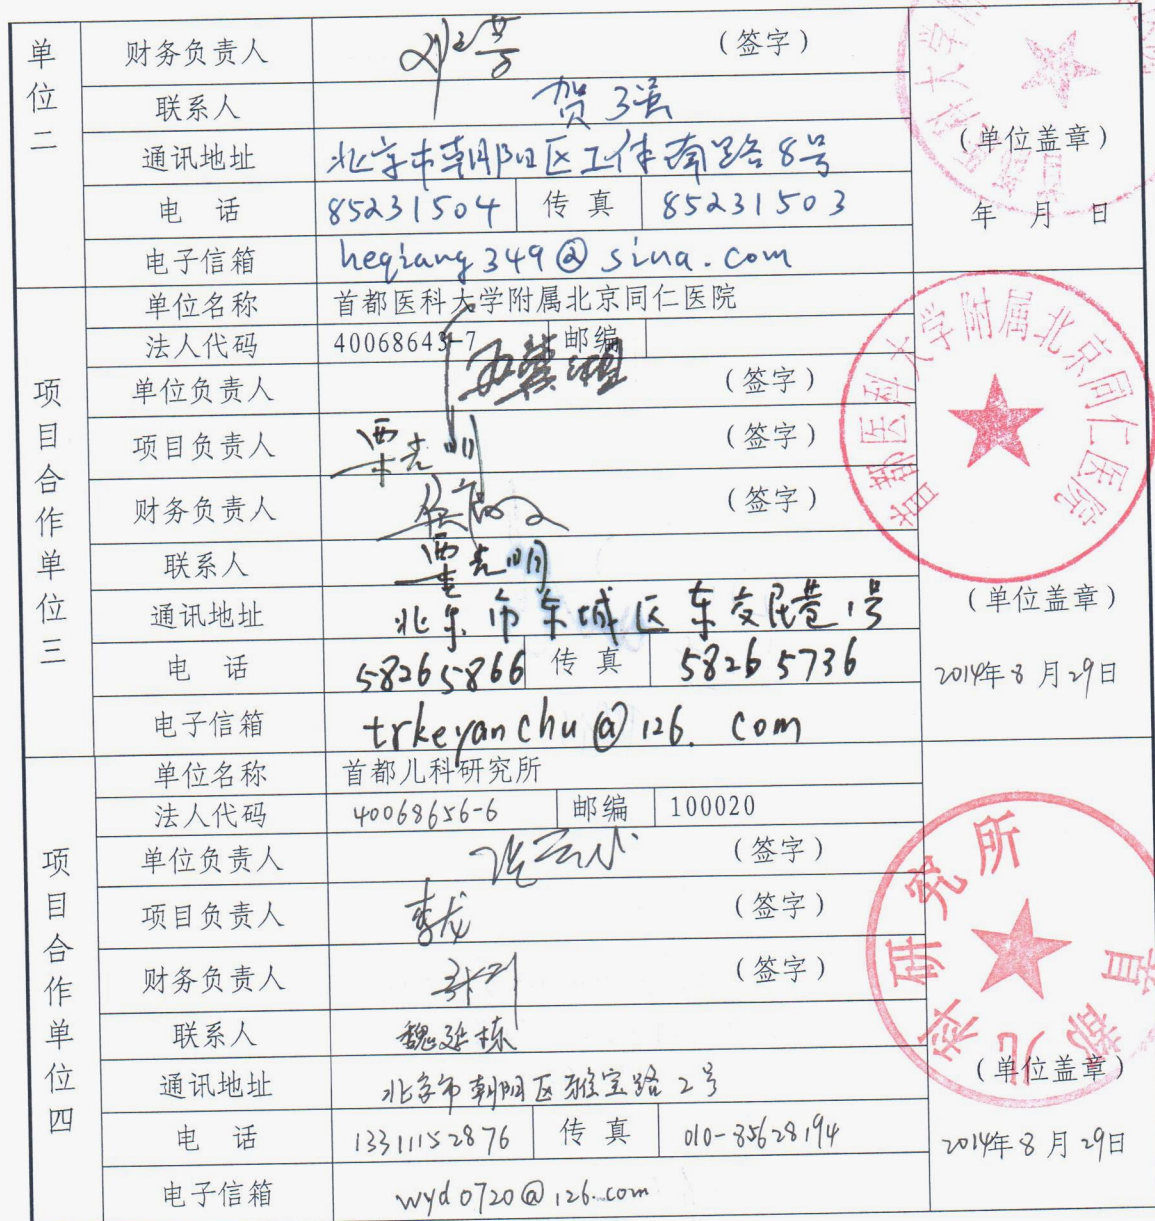 单位二
财务负责人 (签字)
联系人 贺强
通讯地址 北京市朝阳区工体南路8号
电 话 85231504 传 真 85231503
电子信箱 heqiang349@sina.com
(单位盖章)
年 月 日
项目合作单位三
单位名称 首都医科大学附属北京同仁医院
法人代码 40068643-7 邮编
单位负责人 (签字)
项目负责人 (签字)
财务负责人 (签字)
联系人
通讯地址 北京市东城区东交民巷1号
电 话 58265866 传 真 58265736
电子信箱 trkeyanchu@126.com
首都医科大学附属北京同仁医院
(单位盖章)
2014年8月29日
项目合作单位四
单位名称 首都儿科研究所
法人代码 40068656-6 邮编 100020
单位负责人 (签字)
项目负责人 李龙 (签字)
财务负责人 (签字)
联系人 魏延栋
通讯地址 北京市朝阳区雅宝路2号
电 话 13311152876 传 真 010-85628194
电子信箱 wyd0720@126.com
首都儿科研究所
(单位盖章)
2014年8月29日